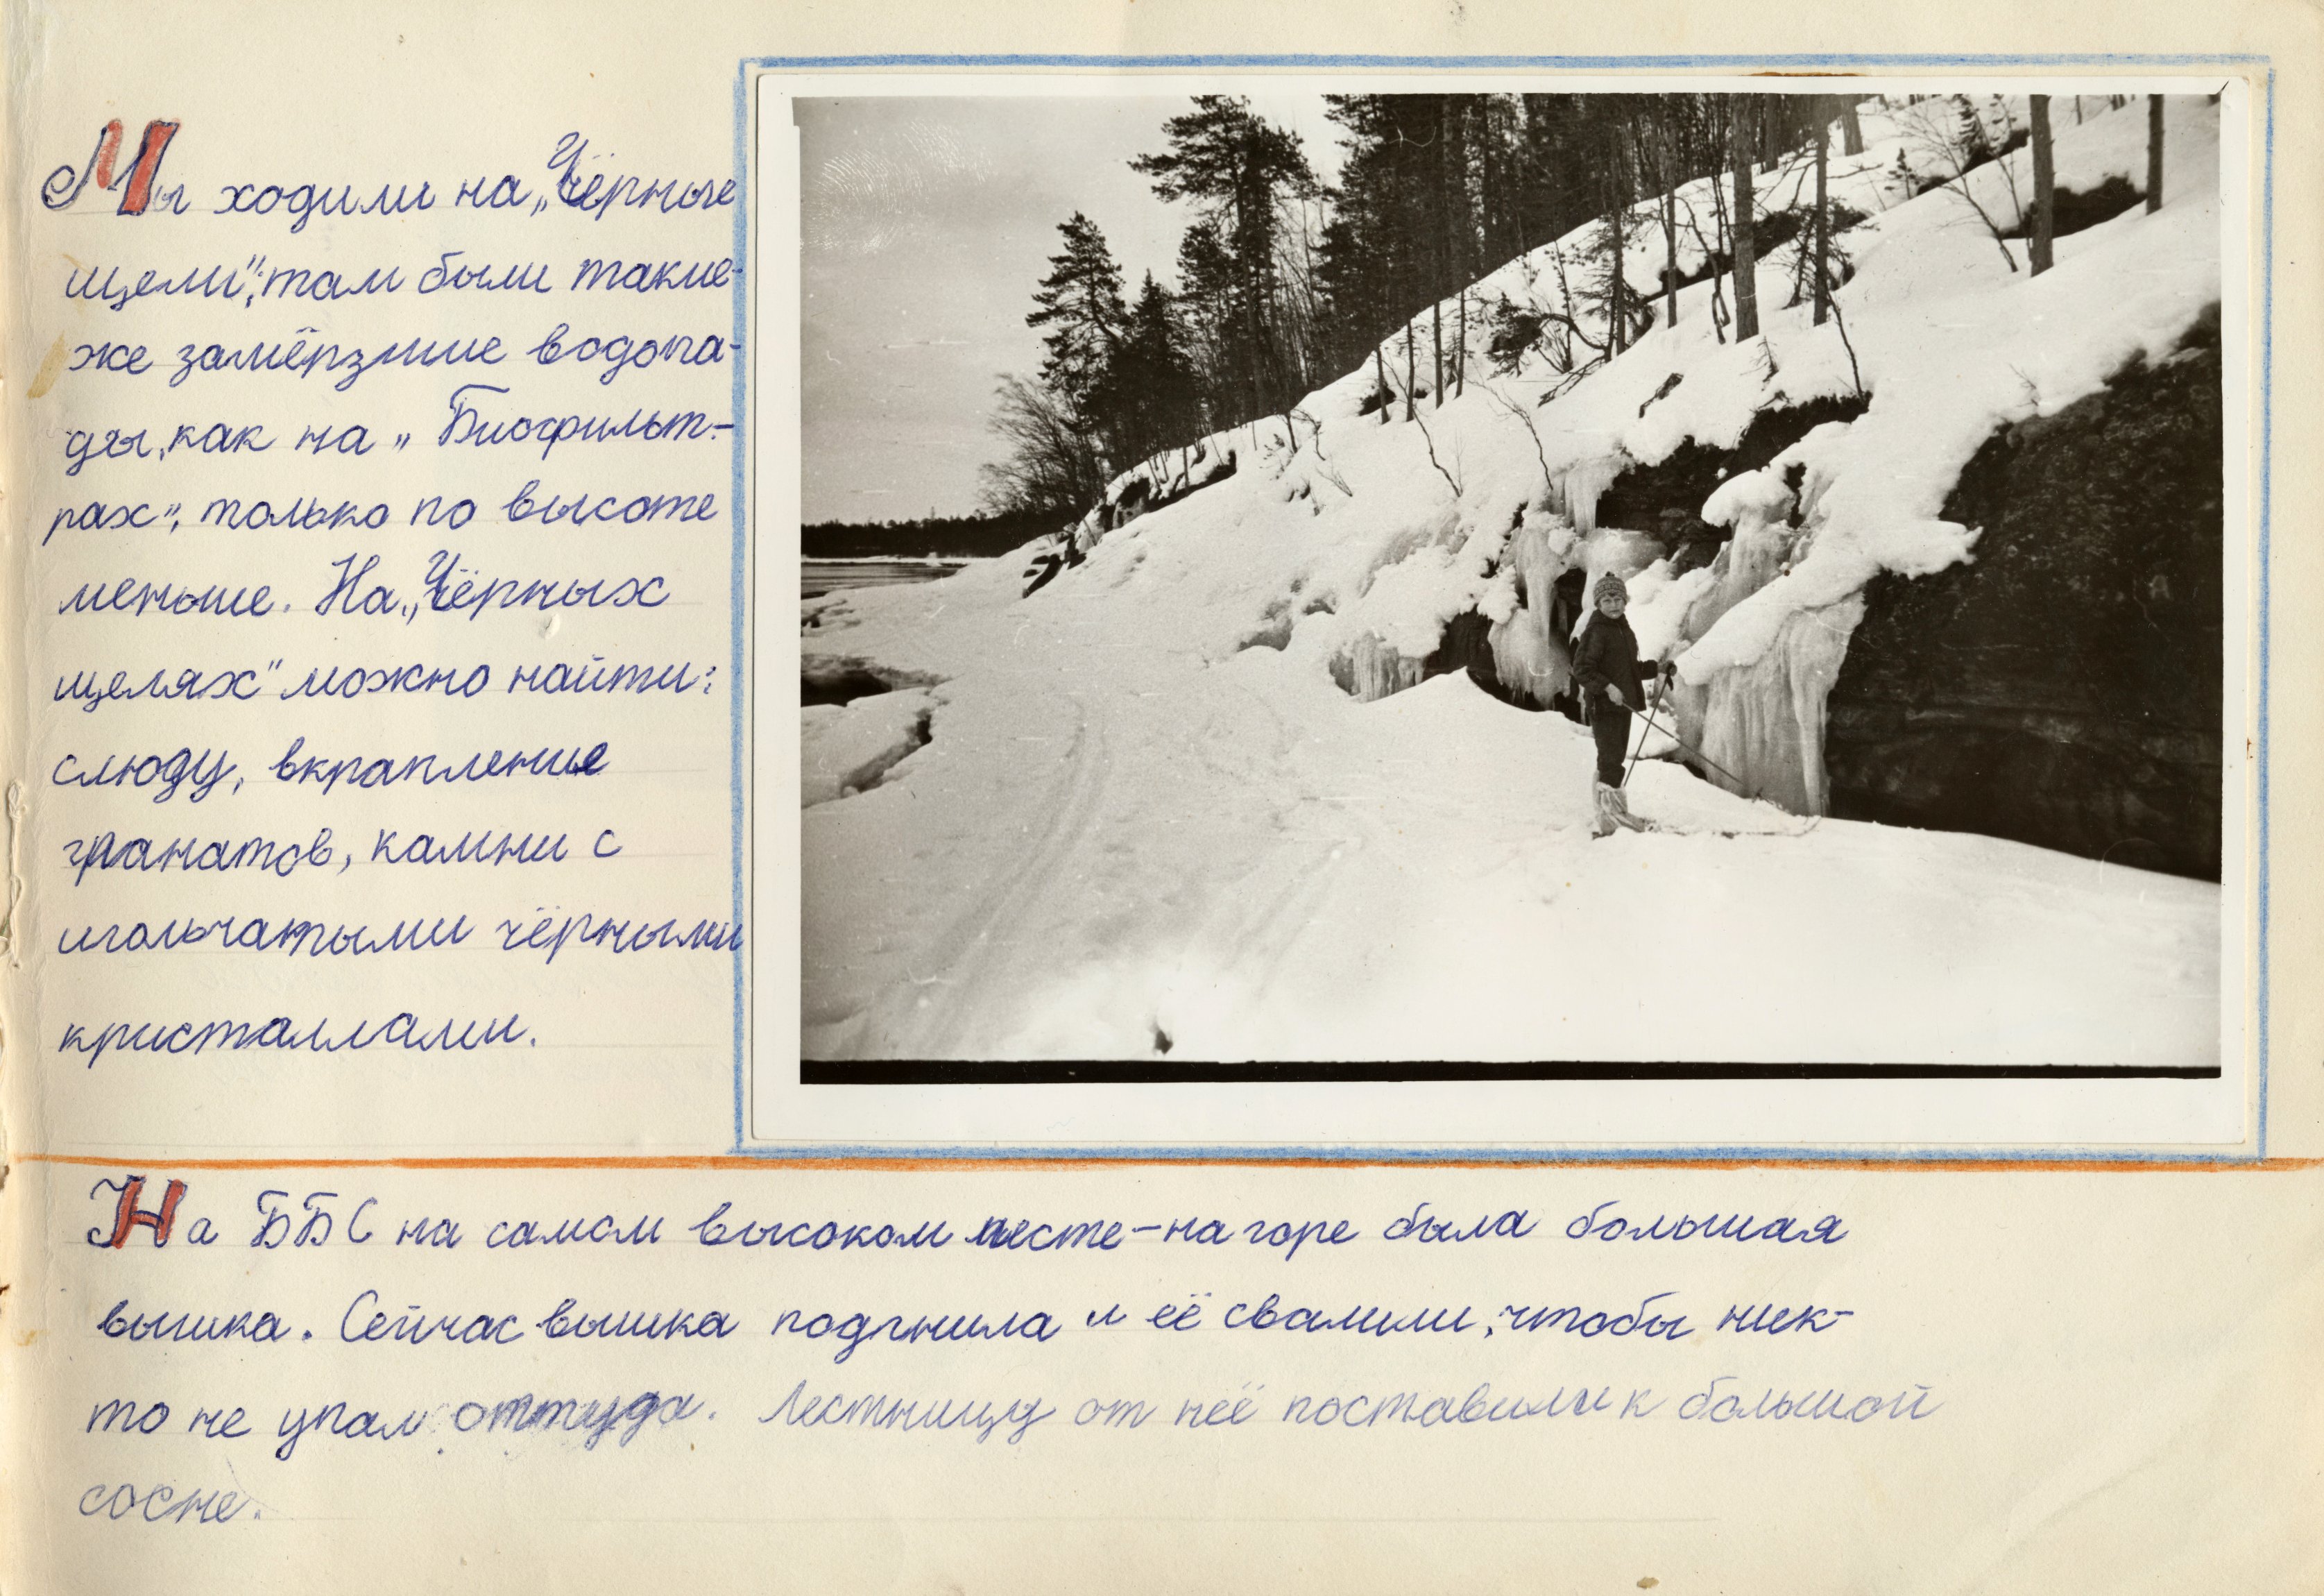 Мы ходили на „Чёрные
щели", там были такие-
же замёрзшие водопа-
ды, как на „Биофильт-
рах", только по высоте
меньше. На „Чёрных
щелях" можно найти:
слюду, вкрапление
гранатов, камни с
игольчатыми чёрными
кристаллами.
На ББС на самом высоком месте - на горе была большая
вышка. Сейчас вышка подгнила и её свалили, чтобы ник-
то не упал оттуда. Лестницу от неё поставили к большой
сосне.